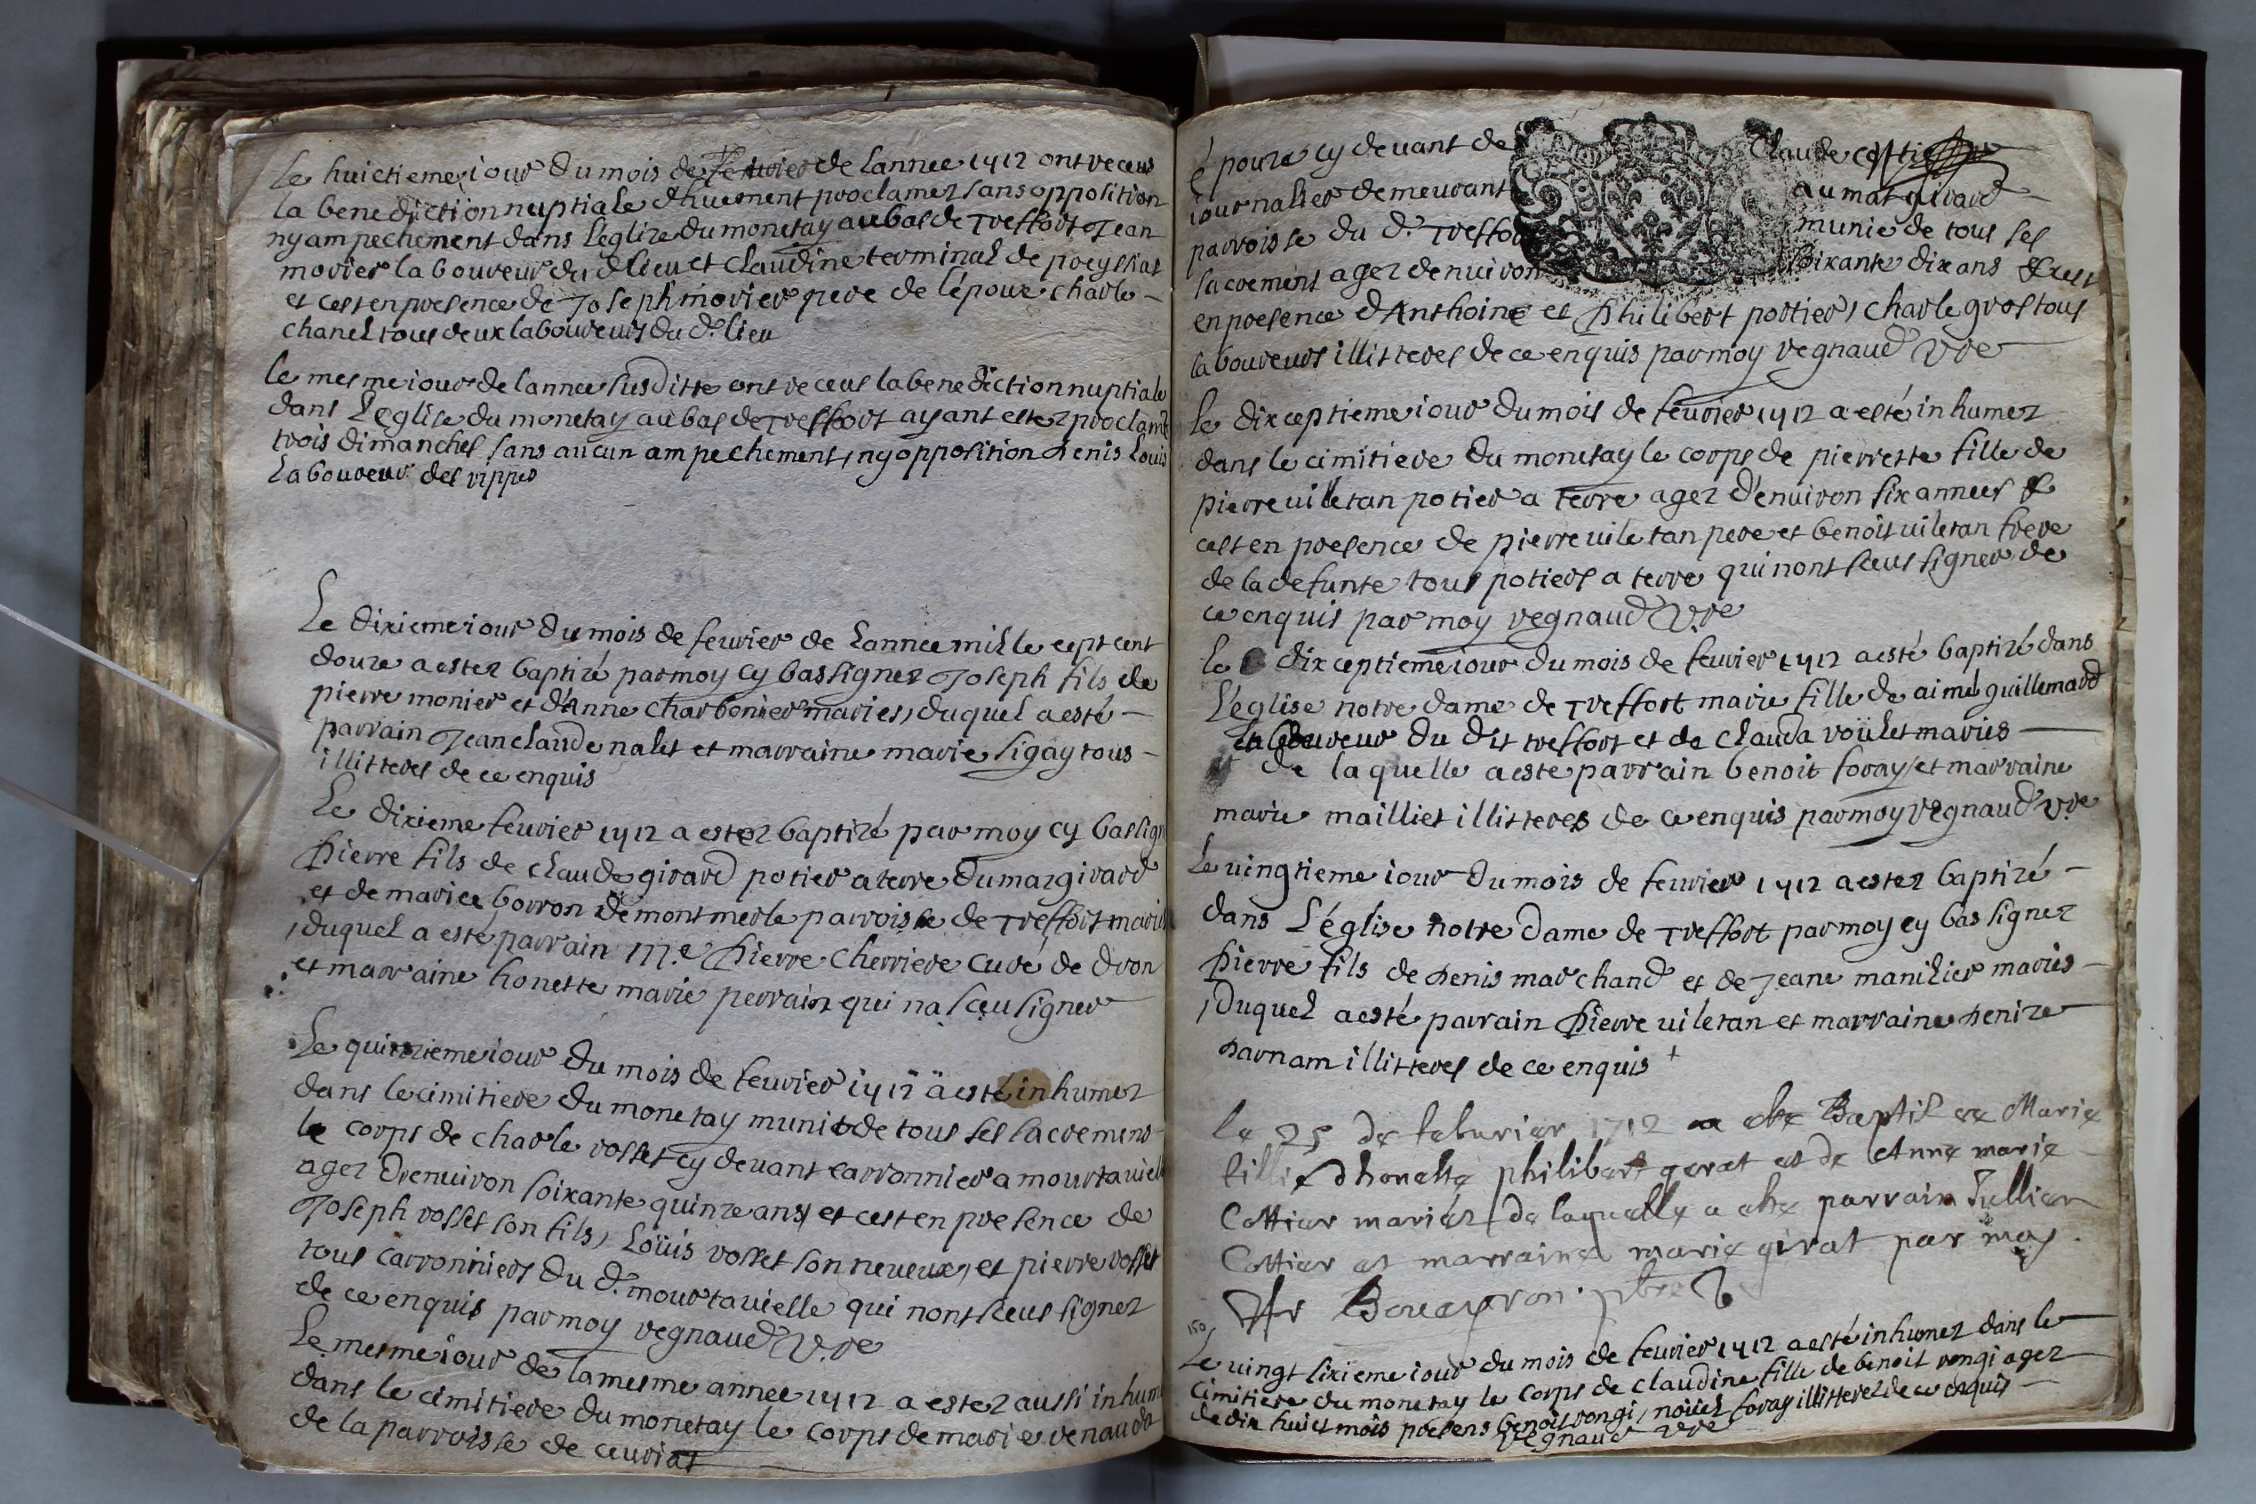 Le huictieme iour du mois de feuvier de lannee 1712 ont receus
la benediction nuptiale dhuement proclamez sans opposition
ny ampechement dans leglize du monetay au bas de Treffort Jean
morier laboureur du d lieu et Claudine terminal de
et cest en presence de Joseph morier pere de lépoux charle
chanel tous deux laboureurs du d. lieu
le mesme iour de lannee susditte ont receus la benediction nuptiale
dans Leglise du monetay au bas de Treffort ayant estez proclamé
trois dimanches sans aucun ampechement, ny opposition Denis Louis
Laboureur des rippes
Le dixieme iour du mois de feuvier de Lannee mille cept cent
douze a estez baptizé par moy cy bas signez Joseph fils de
pierre monier et d'Anne charbonier maries, duquel a esté
parrain Jean claude nalet et marraine marie sigay tous
illitteres de ce enquis
Le dixieme feuvier 1712 a estez baptizé par moy cy bas sign
pierre fils de claude girard potier a terre du maz girard
et de marie borron de montmerle parroisse de Treffort maries
, duquel a esté parrain m.e pierre cherriere Curé de dron
et marraine honette marie perrain qui na sceu signer
Le quinzieme iour du mois de feuvier 1712 a esté inhumez
dans le cimitiere du monetay munit de tous ses sacremens
le corps de charle rosset cy devant carronnier a mourtavielle
agez denuiron soixante quinze ans, et cest en presence de
Joseph rosset son fils, Loüis rosset son neueux, et pierre rosset
tous carronniers du d. mourtauielle qui nont sceus signez
de ce enquis par moy regnaud vre
Le mesme iour de la mesme annee 1712 a estez aussi inhum
dans le cimitiere du monetay le corps de marie renaudz
de la parroisse de ceuriat
époure cy deuant de Claude
iournalier demeurant au mas girard
parroisse du d. Treffort munie de tous ses
sacrement agez denuiron soixante dix ans & cest
en presence d'Anthoine et philibert portier, charle gros tous
laboureurs illitteres de ce enquis par moy regnaud vre
Le dixceptieme iour du mois de feuvier 1712 a esté inhumez
dans le cimitiere du monetay le corps de pierrette fille de
pierre uiletan potier a terre agez d'enuiron six annees &
cest en presence de pierre uiletan pere et benoit uiletan frere
de la defunte tous potiers a terre qui nont sceus signer de
ce enquis par moy regnaud vre
le dixceptieme iour du mois de feuvier 1712 a esté baptizé dans
L'église notre dame de Treffort marie fille de aimé guillemard
laboureur du dit treffort et de clauda roület maries
de laquelle a este parrain benoit foray, et marraine
marie mailliet illitteres de ce enquis par moy regnaud vre
Le uingtieme iour du mois de feuvier 1712 a estez baptizé
dans L'église notre dame de Treffort par moy cy bas signez
pierre fils de denis marchand et de Jeane manilier maries
, duquel a esté parrain pierre uiletan et marraine denize
darnam illitteres de ce enquis +
le 25 de feburier 1712 a este Baptisee Marie
fillie dhoneste philibert gerat et de Anne marie
Cottier mariéz de laquelle a este parrain Jullien
Cottier et marraine marie girat par moy
Boueyron ptre
150
Le uingt sixieme iour du mois de feuvier 1712 a esté inhumez dans le
Cimitiere du monetay le corps de claudine fille de benoit rongi agez
de dix huict mois presens benoit rongi, noüel foray illitterez de ce enquis
regnaud vre